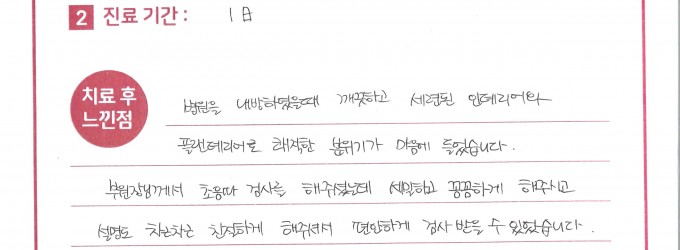 2 진료 기간 : 1日
치료 후
느낀점
병원을 내방하였을때 깨끗하고 세련된 인테리어와
플랜테리어로 쾌적한 분위기가 마음에 들었습니다.
부원장님께서 초음파 검사를 해주셨는데 세밀하고 꼼꼼하게 해주시고
설명도 차근차근 친절하게 해주셔서 편안하게 검사 받을 수 있었습니다.